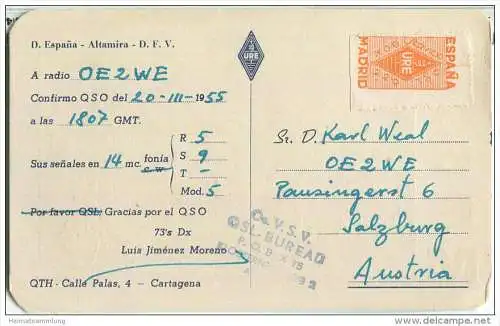 D. España - Altamira - D. F. V.
A radio OE2WE
Confirmo QSO del 20-III-1955
a las 1807 GMT.
R 5
S 9
T -
Mod. 5
Sus señales en 14 mc. fonía
c.w.
Por favor QSL Gracias por el QSO
73's Dx
Luis Jiménez Moreno
QTH - Calle Palas, 4 - Cartagena
URE
MADRID
URE
ESPAÑA
Sr. D. Karl Weal
OE2WE
Pausingerst 6
Salzburg
Austria
Oe. V. S. V.
QSL-BUREAU
P. O. B